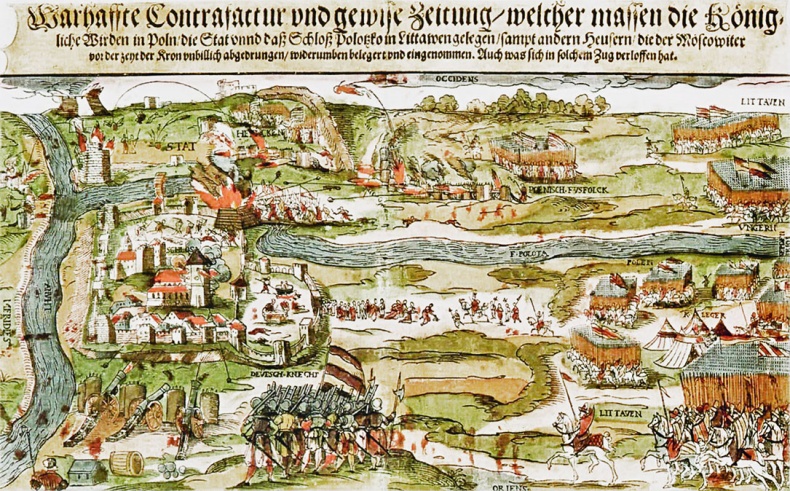 Warhaffte Contrafactur vnd gewise Zeitung/welcher massen die König-
liche Wirden in Poln/die Stat vnnd daß Schloß Polotzko in Littawen gelegen/sampt andern Heusern/die der Moscowiter
vor der zeyt der Kron vnbillich abgedrungen/widerumben belegert vnd eingenommen. Auch was sich in solchem Zug verloffen hat.
OCCIDENS
LITTAVEN
STAT
POLNISCH·FVSFOLCK
F·POLOTA
POLEN
LEGER
DEVTSCH·KNECHT
LITTAVEN
ORIENS